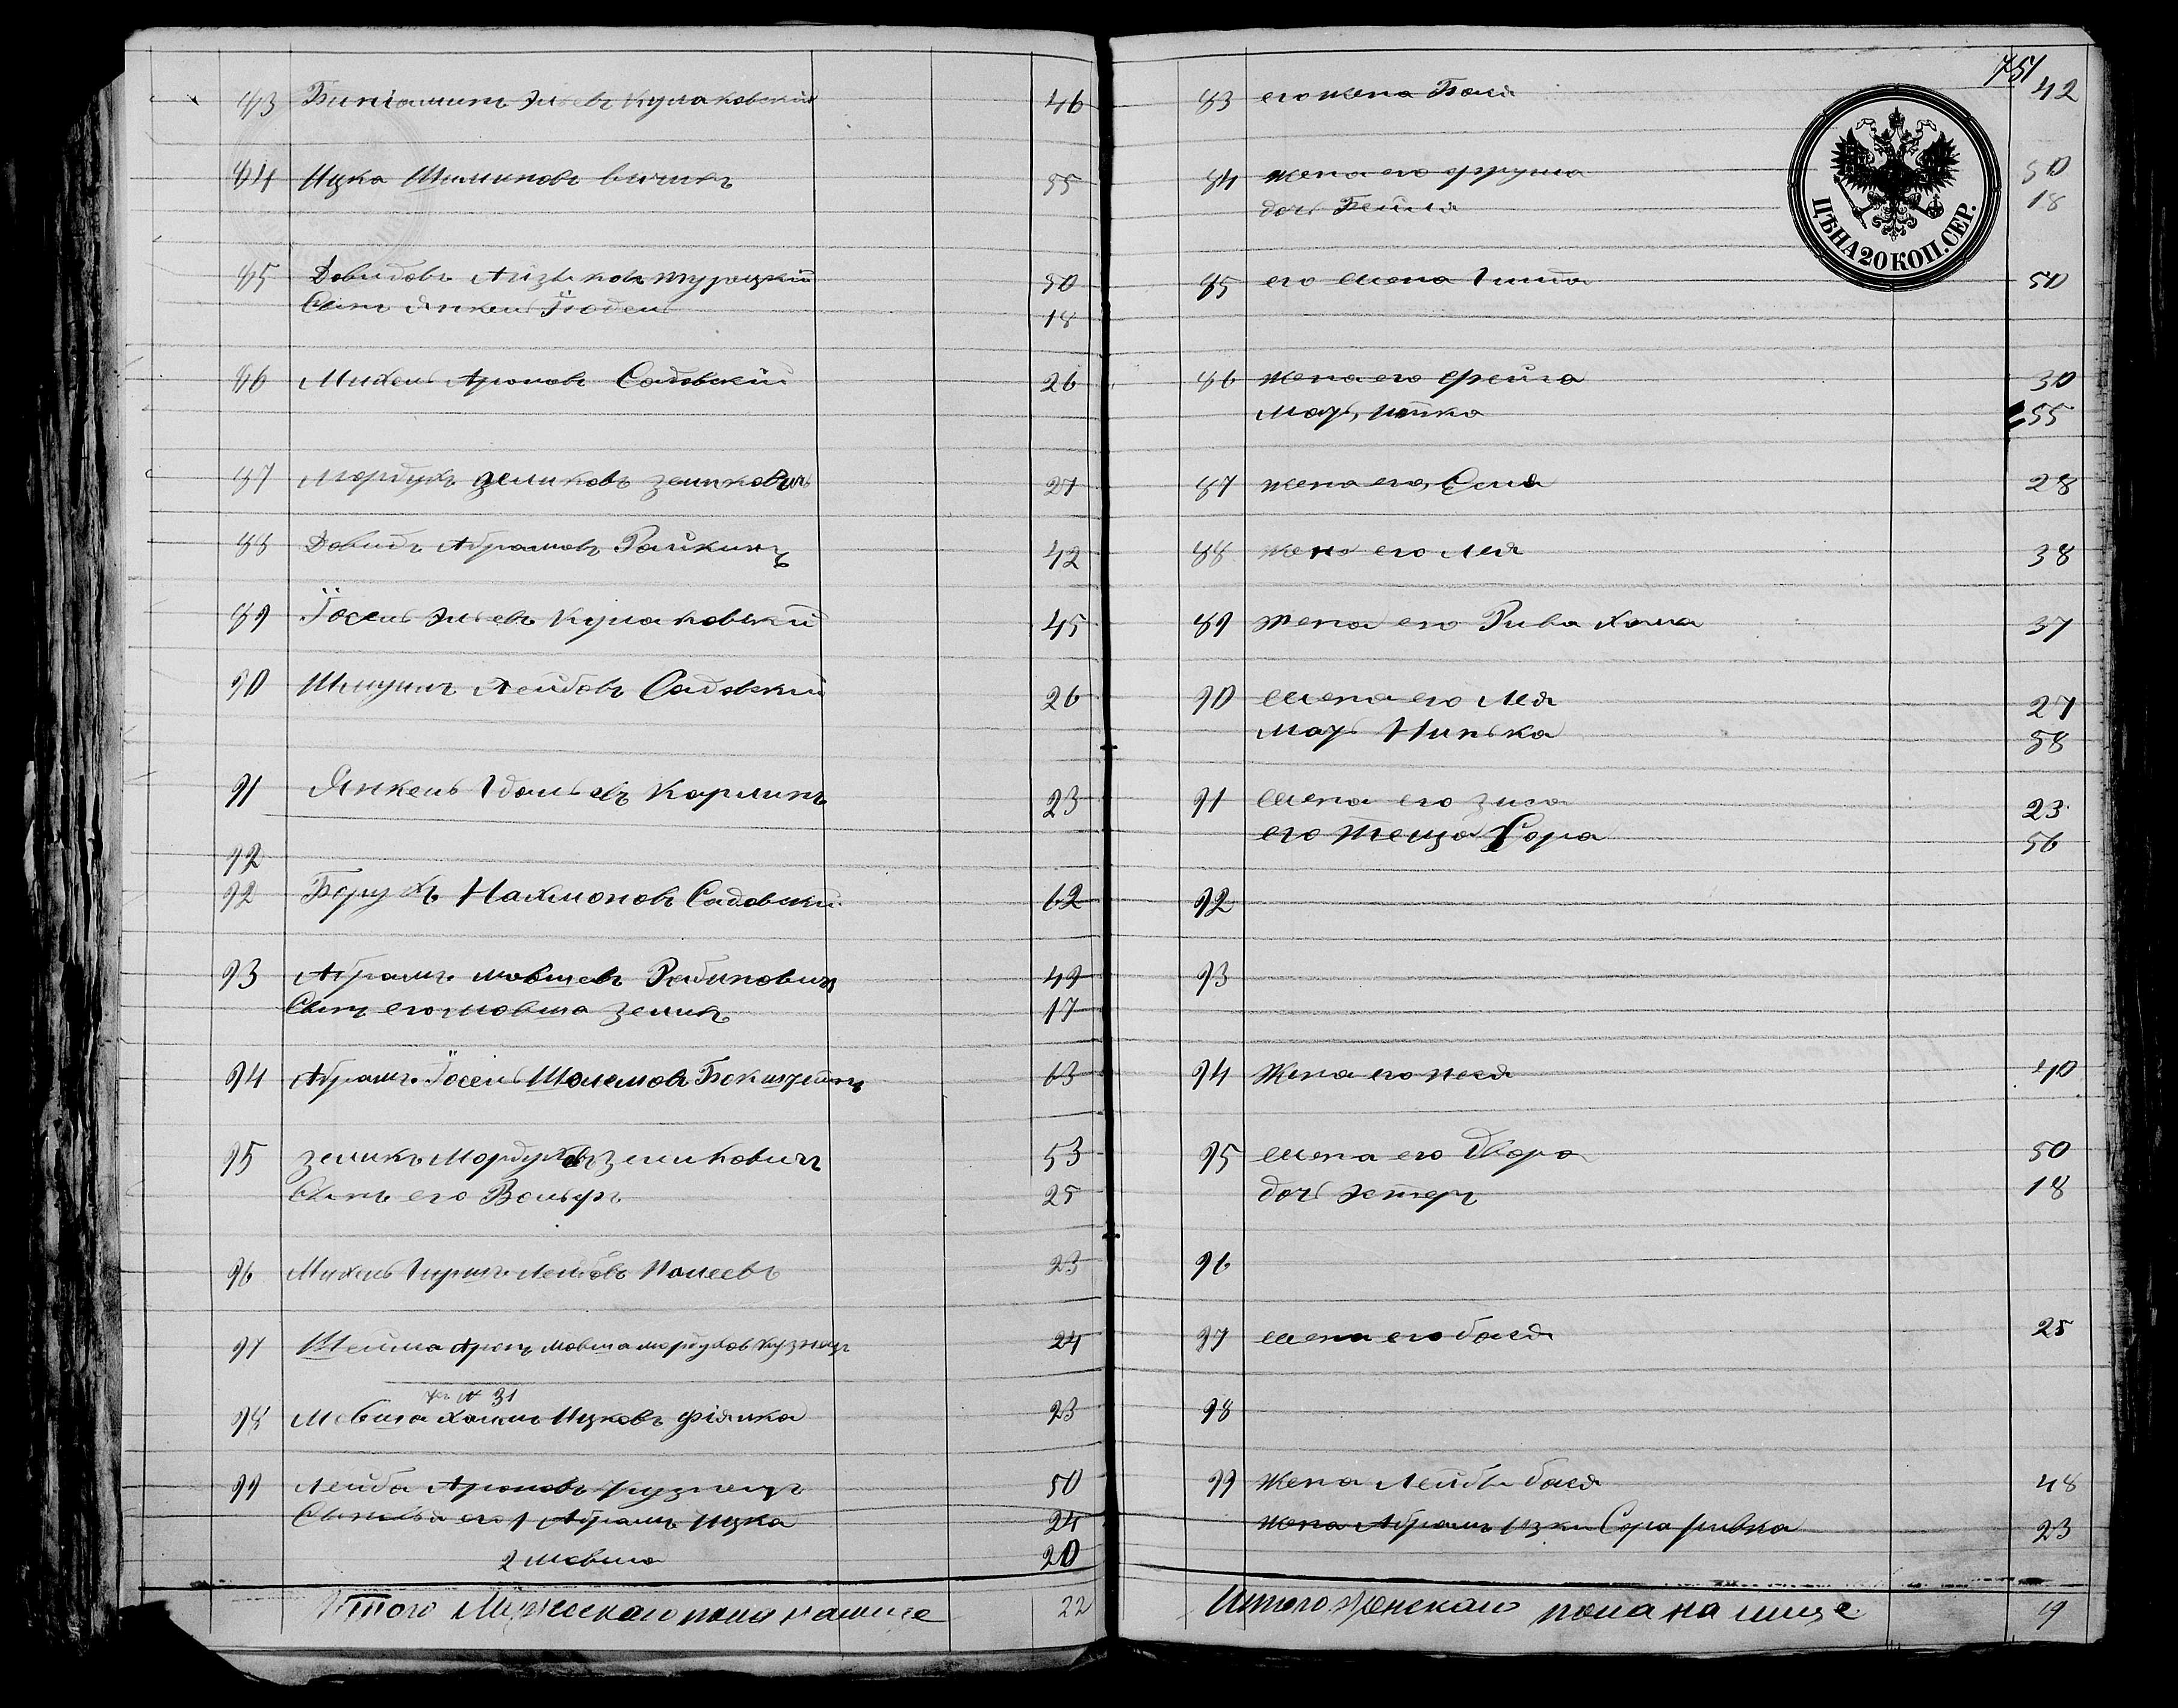 83 Биніоминъ Эльевъ Кулаковскій 46
84 Ицка Шлиомовъ 55
85 Довидовъ Айзиковъ Турецкій 50
Сынъ Янкель Іодель 18
86 Михель Ароновъ Садовскій 26
87 Мордухъ Зеликовъ Зеликовичъ 27
88 Довидъ Абрамовъ Райкинъ 42
89 Іосель Эльевъ Кулаковскій 45
90 Шмуилъ Лейбовъ Садовскій 26
91 Янкель Ідальевъ Карлинъ 23
92
92 Борухъ Нахмоновъ Садовскій 62
93 Абрамъ Мовшевъ Рабиновичъ 49
Сынъ его Мовша Зеликъ 17
94 Абрамъ Іосель Шолемовъ Бокштейнъ 63
95 Зеликъ Мордуховъ Зеликовичъ 53
Сынъ его Вольфъ 25
96 Михель Гиршъ Лейбовъ 23
97 Шейма Аронъ Мовша Мордуховъ Кузнецъ 24
№ 31
98 Мовша Хаимъ Ицковъ Фіялка 23
99 Лейба Ароновъ Кузнецъ 50
Сыновья его 1 Абрамъ Ицка 24
2 Мовша 20
Итого Мужескаго пола налице 22
751
83 его жена Бася 42
ЦѢНА 20 КОП. СЕР.
84 жена его Фрума 50
дочь Бейля 18
85 его жена Гитта 50
86 жена его Фейга 30
мать Итка 55
87 жена его, Еля 28
88 жена его Лея 38
89 жена его Рива Хана 37
90 жена его Лея 27
мать Нинька 58
91 жена его Зиса 23
его теща Сора 56
92
93
94 Жена его Песя 40
95 жена его Двора 50
дочь Эстеръ 18
96
97 жена его бася 25
98
99 Жена Лейбы бася 48
жена Абрамъ Ицки Сора ривка 23
Итого женскаго пола на лице 19